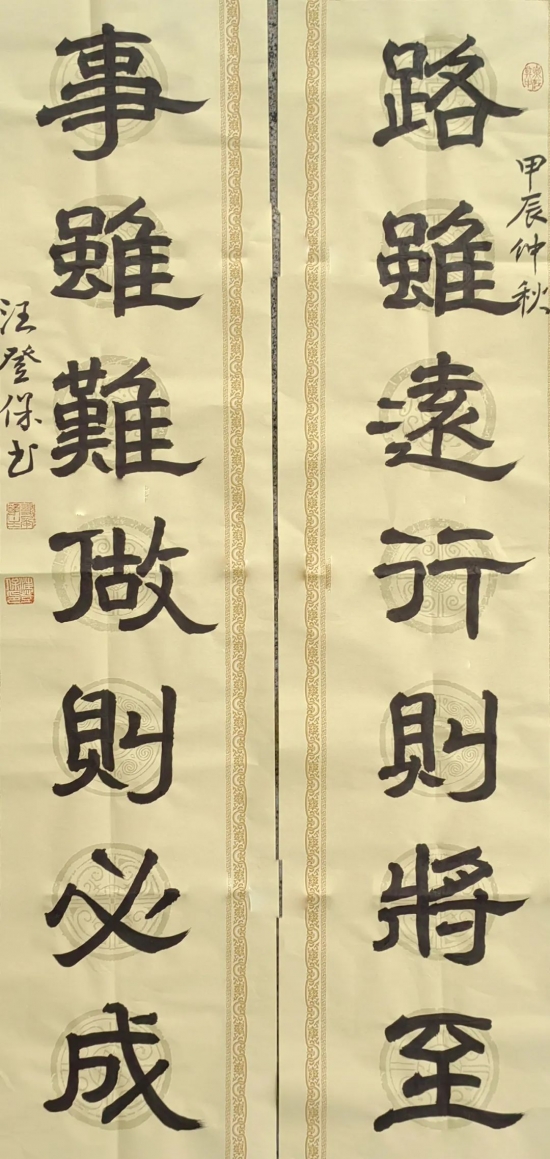 路雖遠行則將至
甲辰仲秋
事雖難做則必成
汪登保书